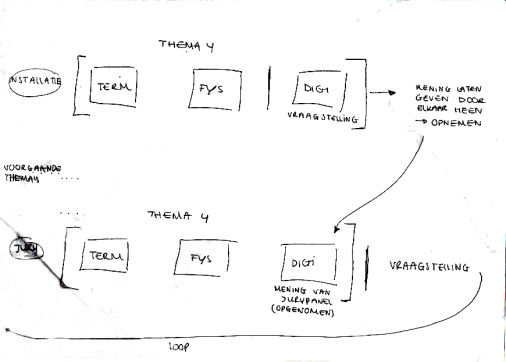 THEMA 4
INSTALLATIE
TERM
FYS
DIGI
VRAAGSTELLING
MENING LATEN
GEVEN DOOR
ELKAAR HEEN
→ OPNEMEN
VOORGAANDE
THEMA'S ....
....
THEMA 4
JURY
TERM
FYS
DIGI
MENING VAN
JURYPANEL
(OPGENOMEN)
VRAAGSTELLING
LOOP